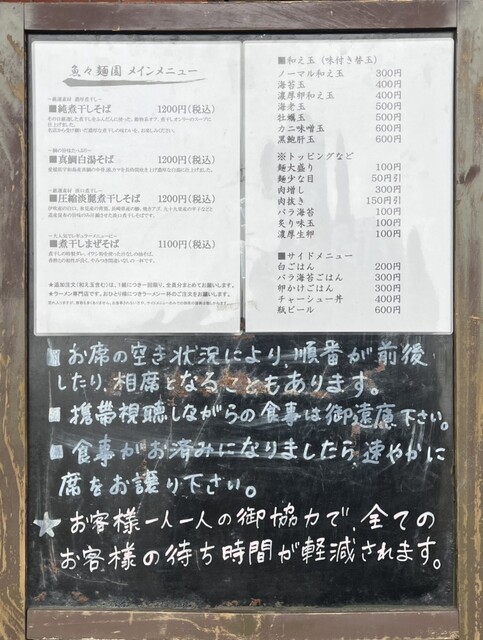 魚々麺園 メインメニュー
■純煮干しそば 1200円(税込)
■真鯛白湯そば 1200円(税込)
■圧縮淡麗煮干しそば 1200円(税込)
■煮干しまぜそば 1100円(税込)
★追加注文(和え玉含む)は、1組につき一回限り、全員分まとめてお願いします。
★ラーメン専門店です。お1人り様につきラーメン一杯のご注文をお願いします。
■和え玉（味付き替玉）
ノーマル和え玉 300円
海苔玉 400円
濃厚卵和え玉 400円
海老玉 500円
牡蠣玉 500円
カニ味噌玉 600円
黒鮑肝玉 600円
※トッピングなど
麺大盛り 100円
麺少な目 50円引
肉増し 300円
肉抜き 150円引
バラ海苔 100円
炙り味玉 100円
濃厚生卵 100円
■サイドメニュー
白ごはん 200円
バラ海苔ごはん 300円
卵かけごはん 300円
チャーシュー丼 400円
瓶ビール 600円
■お席の空き状況により、順番が前後
したり、相席となることもあります。
■携帯視聴しながらの食事は御遠慮下さい。
■食事がお済みになりましたら、速やかに
席をお譲り下さい。
★お客様一人一人の御協力で、全ての
お客様の待ち時間が軽減されます。